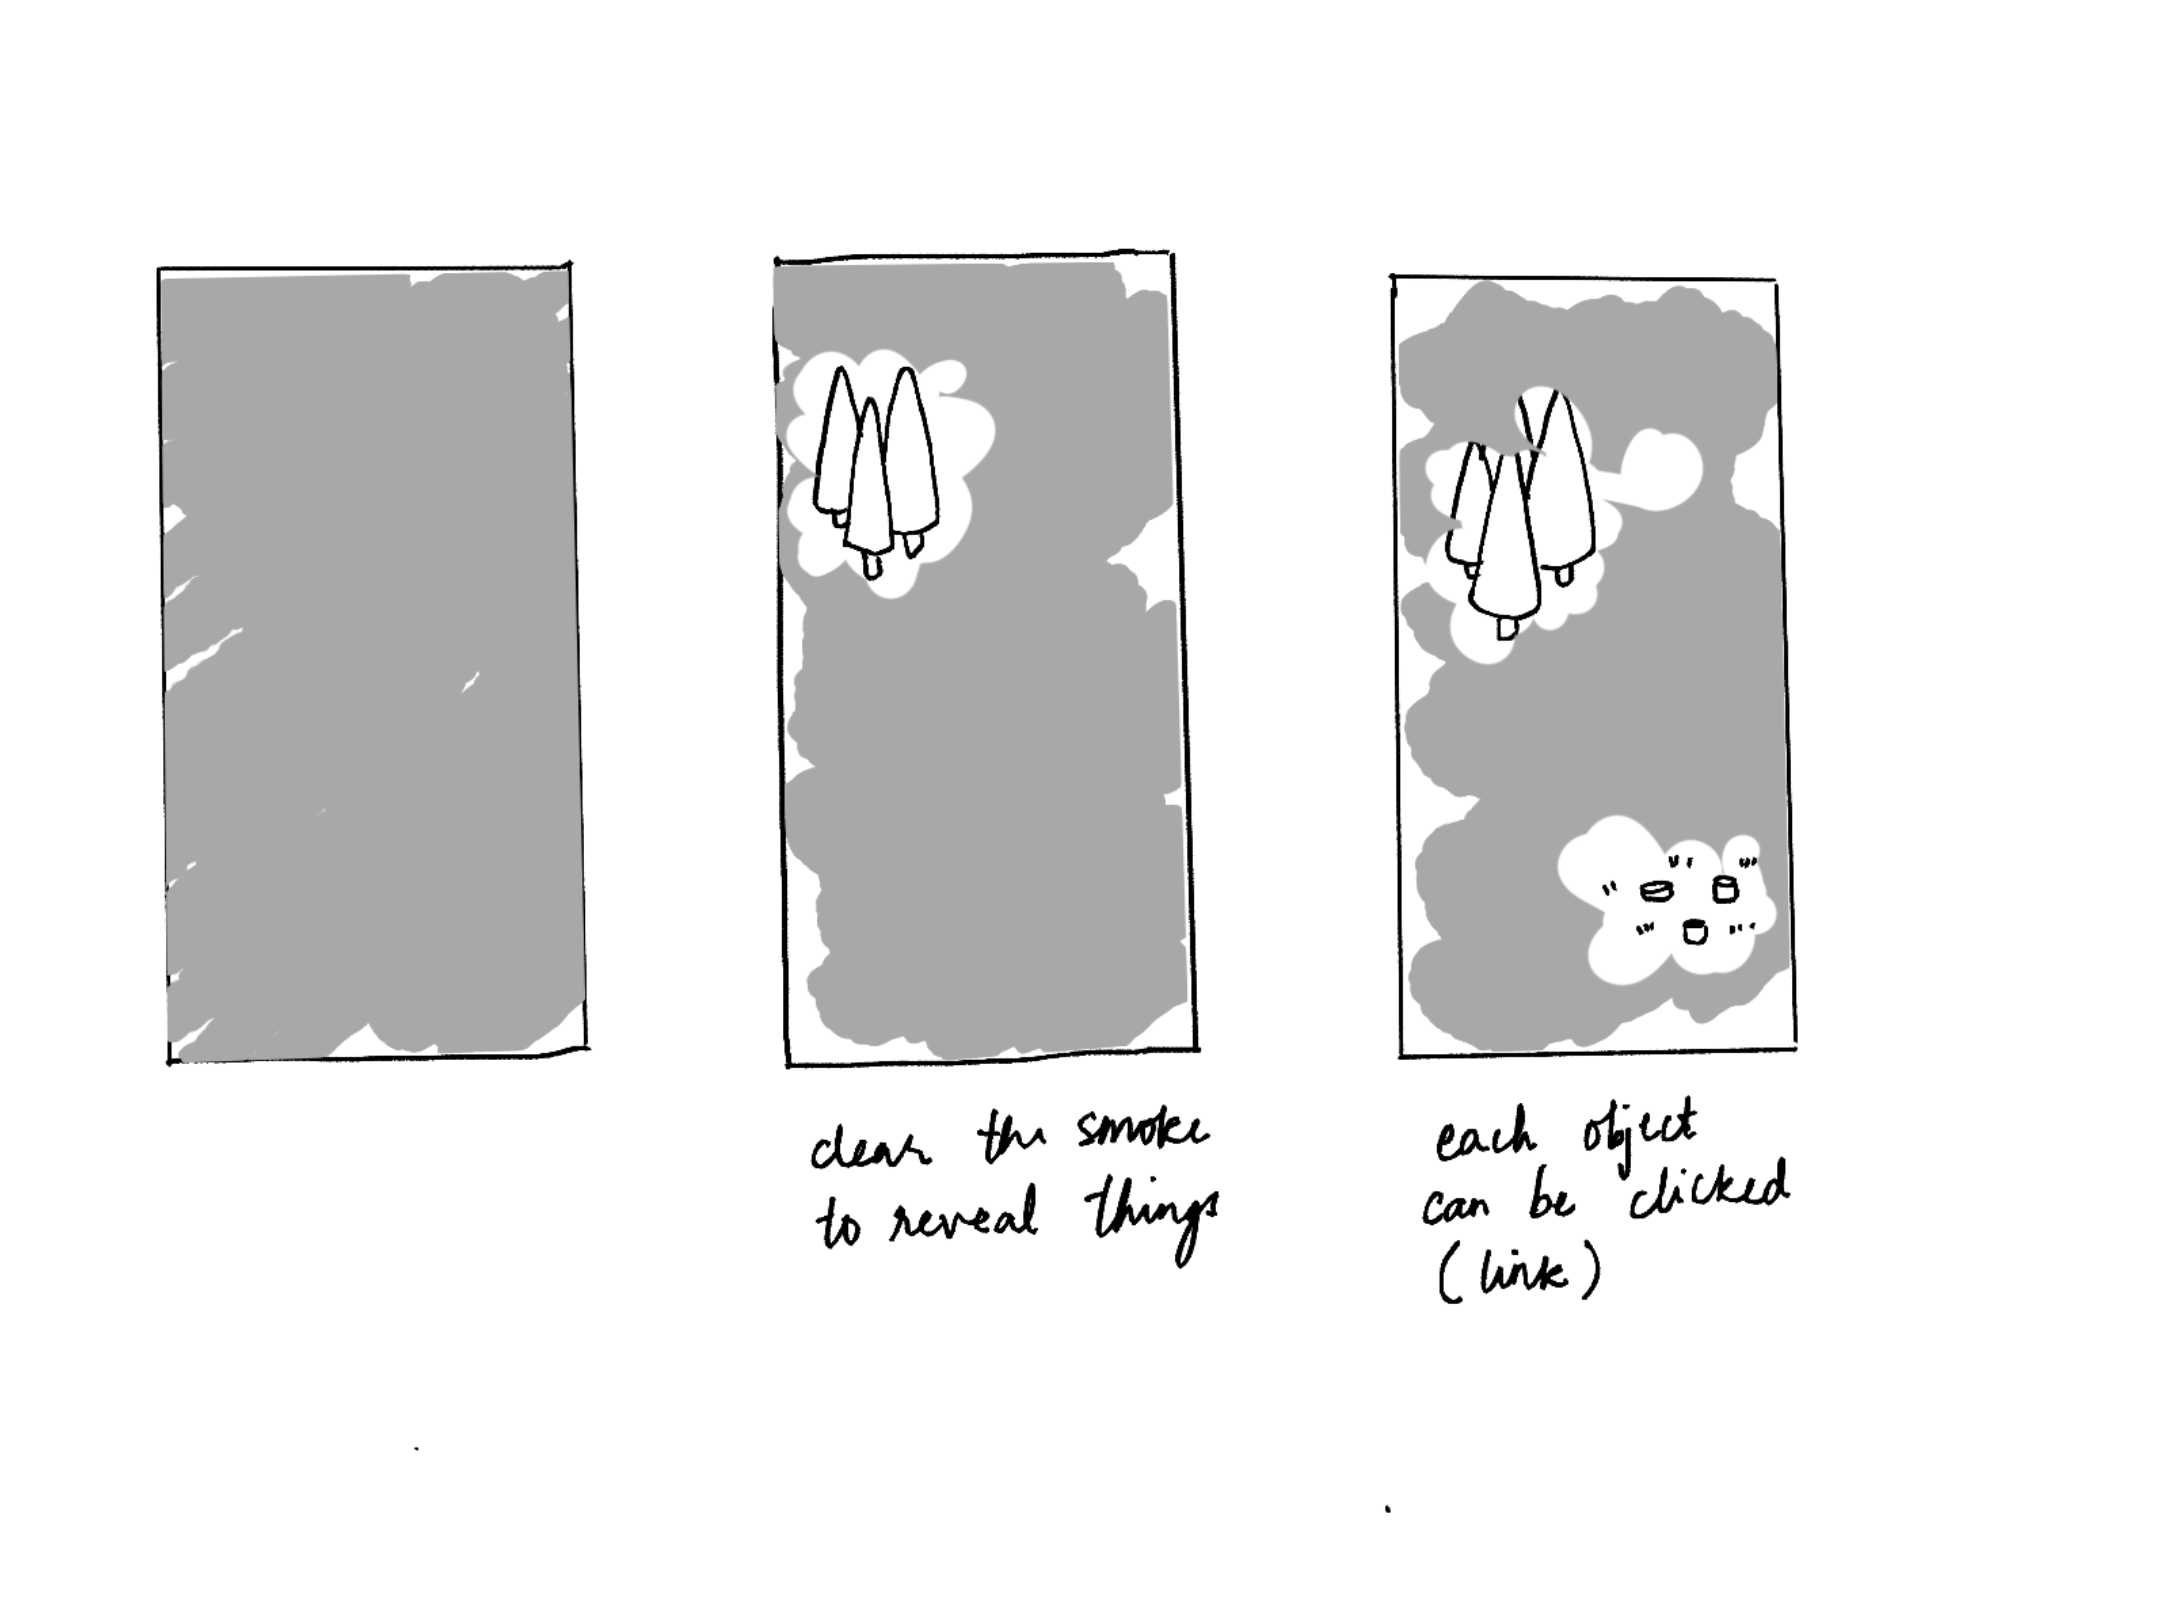 clear the smoke
to reveal things
each object
can be clicked
(link)